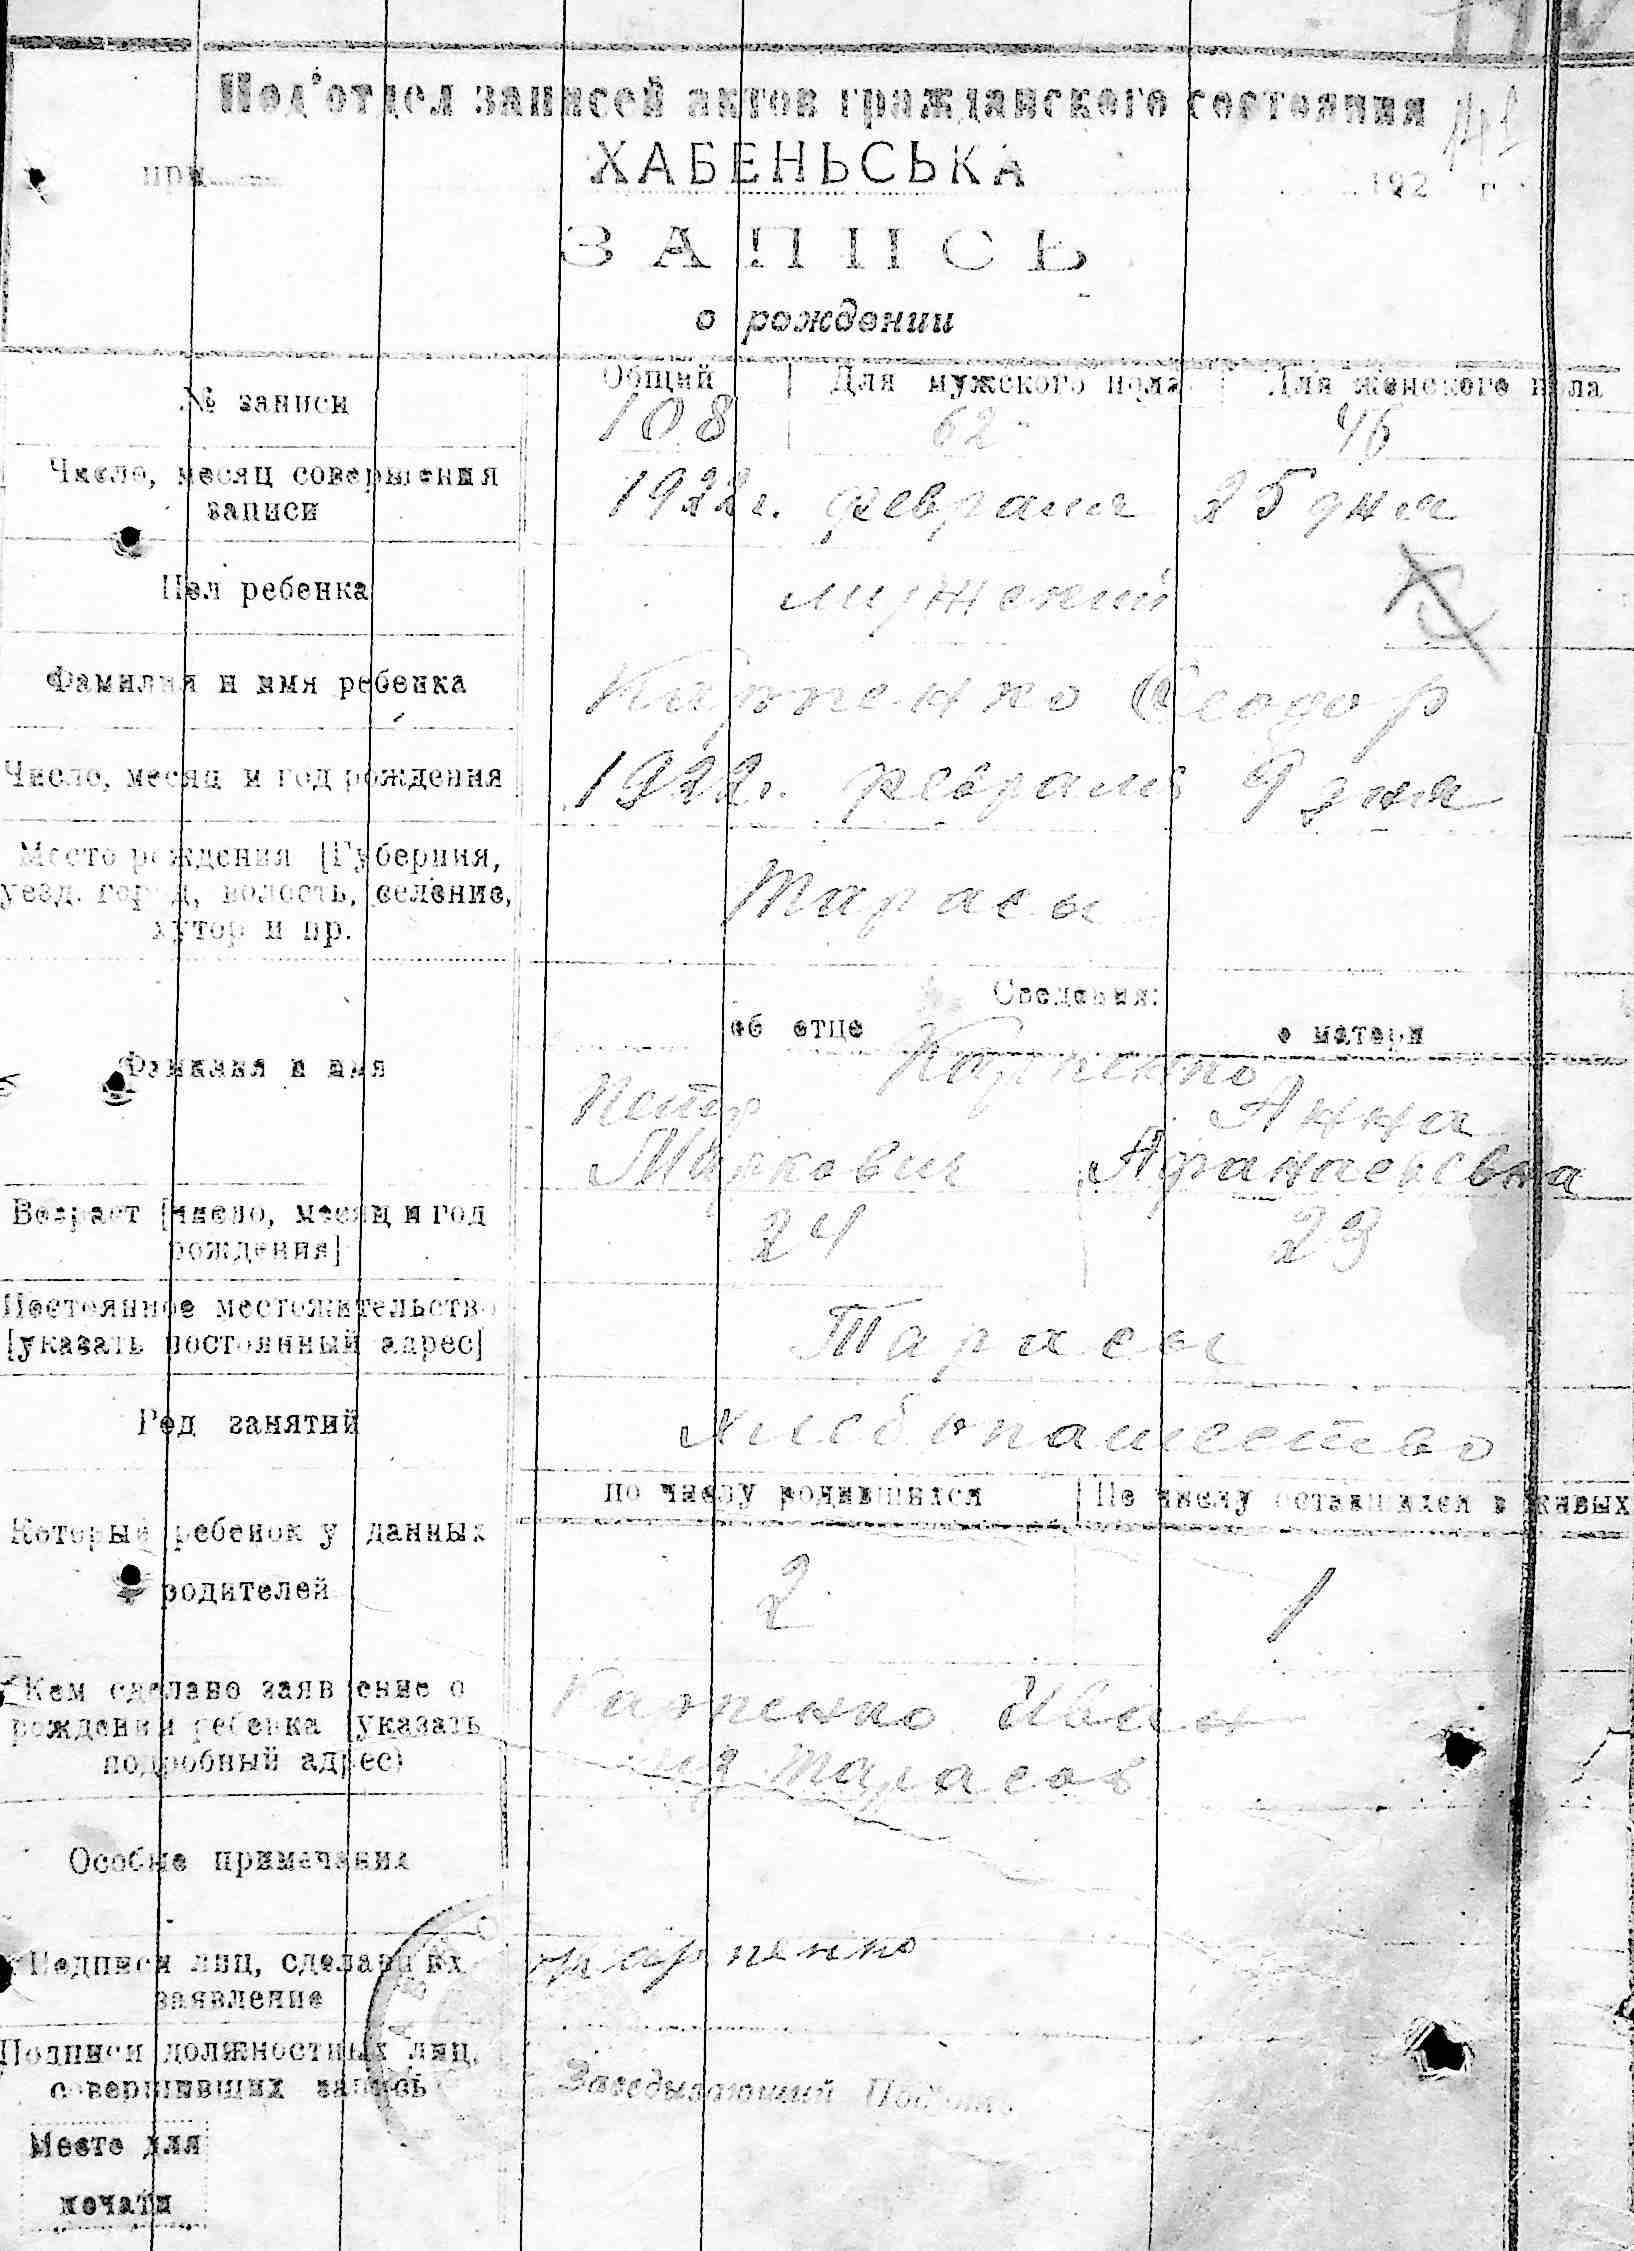 Под'отдел записей актов гражданского состояния
при ХАБЕНЬСЬКА 192 г.
ЗАПИСЬ
о рождении
№ записи
Общий Для мужского пола Для женского пола
108 62 46
Число, месяц совершения записи
1922 г. февраля 25 дня
Пол ребенка
мужской
Фамилия и имя ребенка
Карпенко Феодор
Число, месяц и год рождения
1922 г. февраля 9 дня
Место рождения [Губерния,
уезд, город, волость, селение,
хутор и пр.
Тарасы
Сведения:
об отце о матери
Фамилия и имя
Карпенко
Петр Анна
Маркович Афанасьевна
Возраст [число, месяц и год
рождения]
24 23
Постоянное местожительство
[указать постоянный адрес]
Тарасы
Род занятий
хлебопашество
по числу родившихся По числу оставшихся в живых
Который ребенок у данных
родителей
2 1
Кем сделано заявление о
рождении ребенка (указать
подробный адрес)
Карпенко Иван
из Тарасов
Особые примечания
Подписи лиц, сделавших
заявление
Карпенко
Подписи должностных лиц,
совершивших запись
Заведывающий
Место для
печати